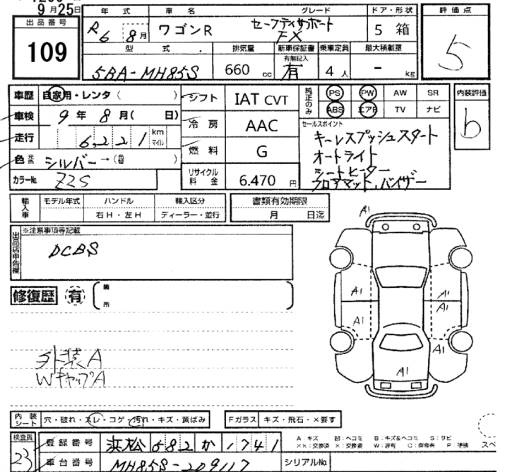 9月25日
出品番号
109
年式 車名 グレード ドア・形状 評価点
R6 8月 ワゴンR セーフティサポート FX 5 箱 5
型式 排気量 新車保証書 有無記入 乗車定員 最大積載量
5BA-MH85S 660cc 有 4人 - kg
車歴 自家用・レンタ( )
車検 9年8月( 日)
走行 6,221 km マイル
色 シルバー→( )
カラーNo. Z2S
シフト IAT CVT
冷房 AAC
燃料 G
リサイクル料金 6.470円
純正のみ PS PW AW SR
ABS エアB TV ナビ
セールスポイント
キーレスプッシュスタート
オートライト
シートヒーター
フロアマット、バイザー
内装評価
b
輸入車 モデル年式 ハンドル 輸入区分
右H・左H ディーラー・並行
書類有効期限
月 日迄
出品店申告欄 ※注意事項等記載
DCBS
修復歴 有 ( 箇所
外装A
WキャップA
A1
A1
A1
A1
A1
A1
内装シート 穴・破れ・スレ・コゲ・汚れ・キズ・黄ばみ
Fガラス キズ・飛石・×要す
検査員 23
登録番号 浜松582か1741
車台番号 MH85S-209117
シリアルNo.